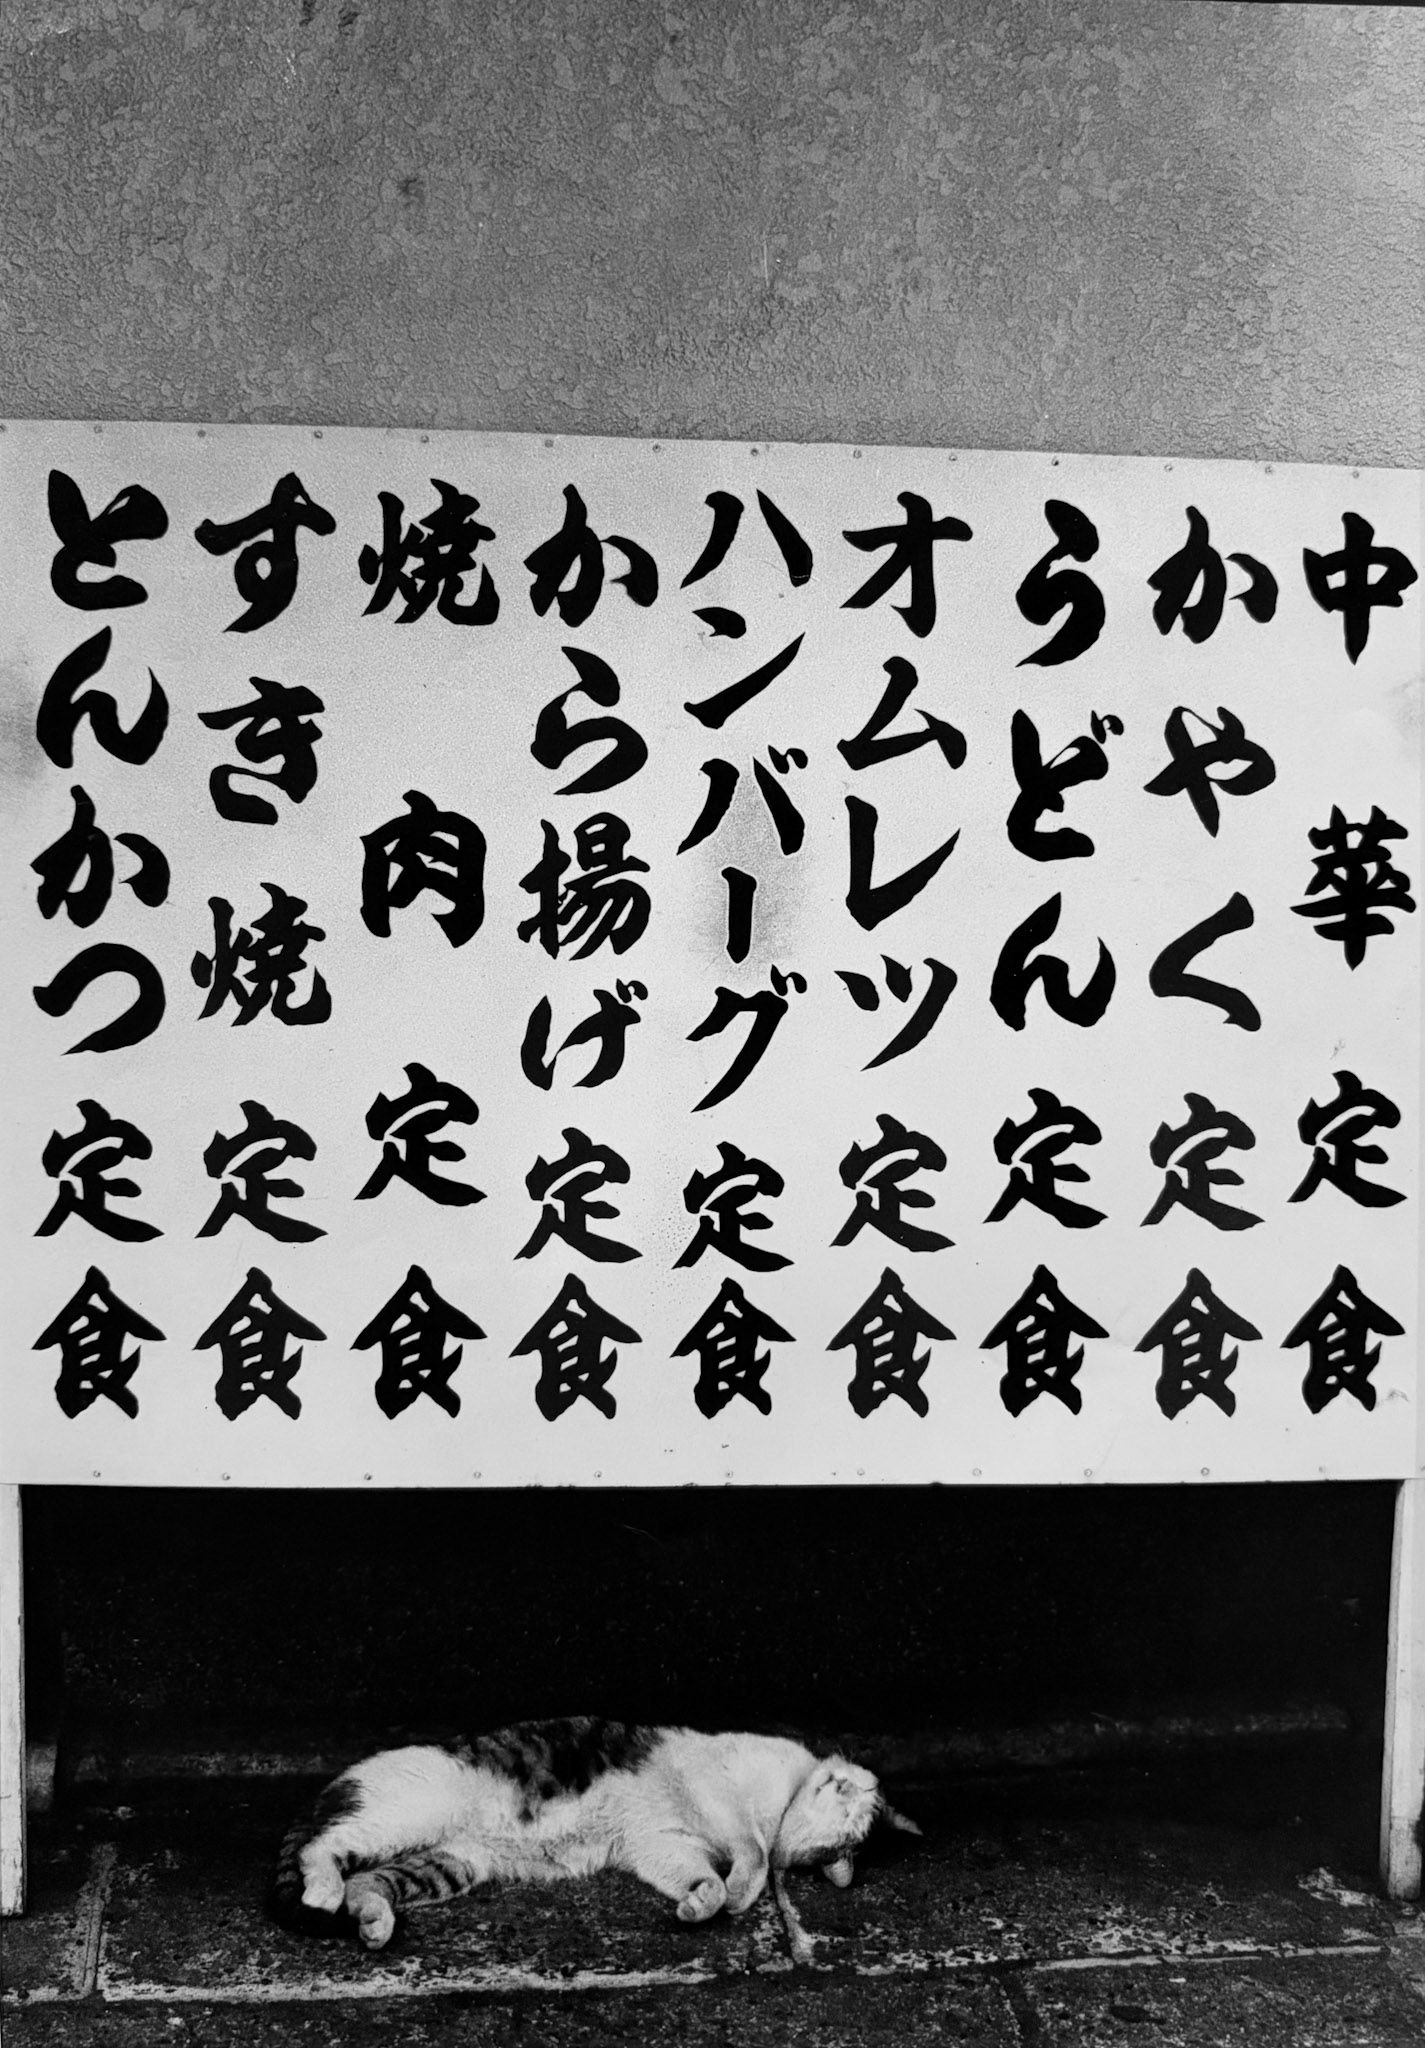 中華定食
かやく定食
うどん定食
オムレツ定食
ハンバーグ定食
から揚げ定食
焼肉定食
すき焼定食
とんかつ定食